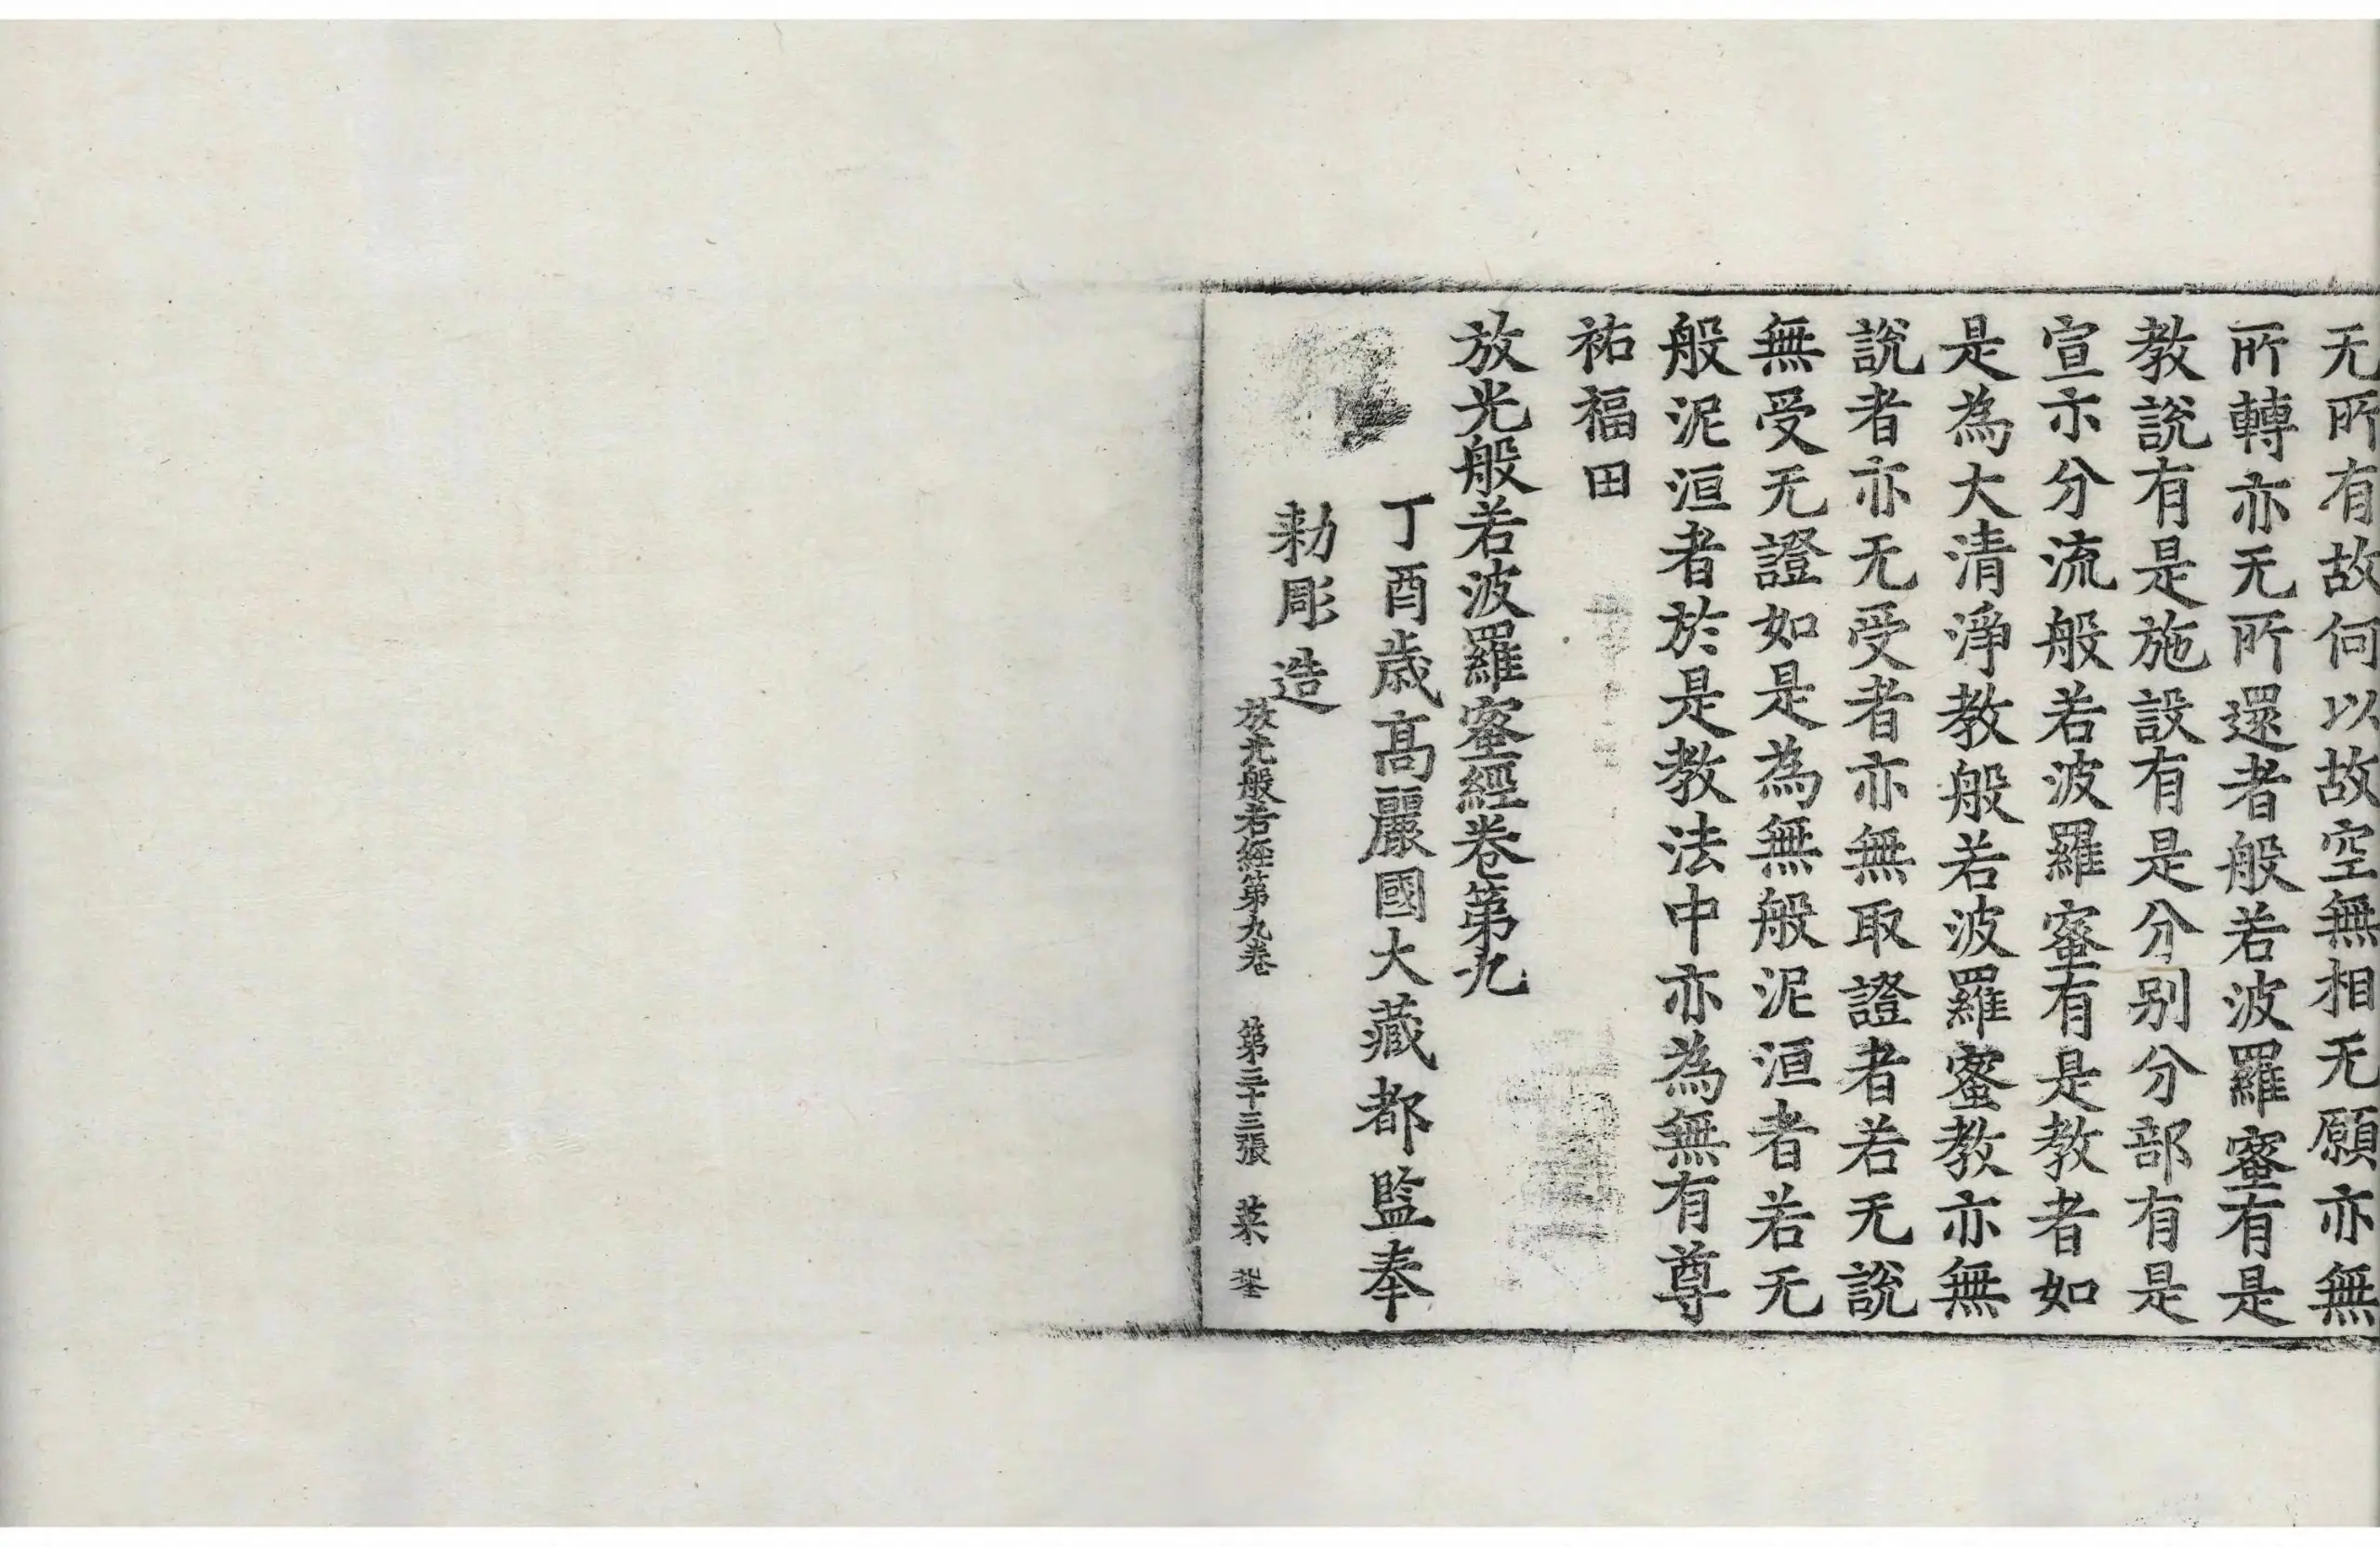 无所有故何以故空無相无願亦無
所轉亦无所還者般若波羅蜜有是
教說有是施設有是分别分部有是
宣示分流般若波羅蜜有是教者如
是為大清淨教般若波羅蜜教亦無
說者亦无受者亦無取證者若无說
無受无證如是為無般泥洹者若无
般泥洹者於是教法中亦為無有尊
祐福田
放光般若波羅蜜經卷第九
丁酉歲高麗國大藏都監奉
勑彫造
放光般若經第九卷 第三十三張 菜